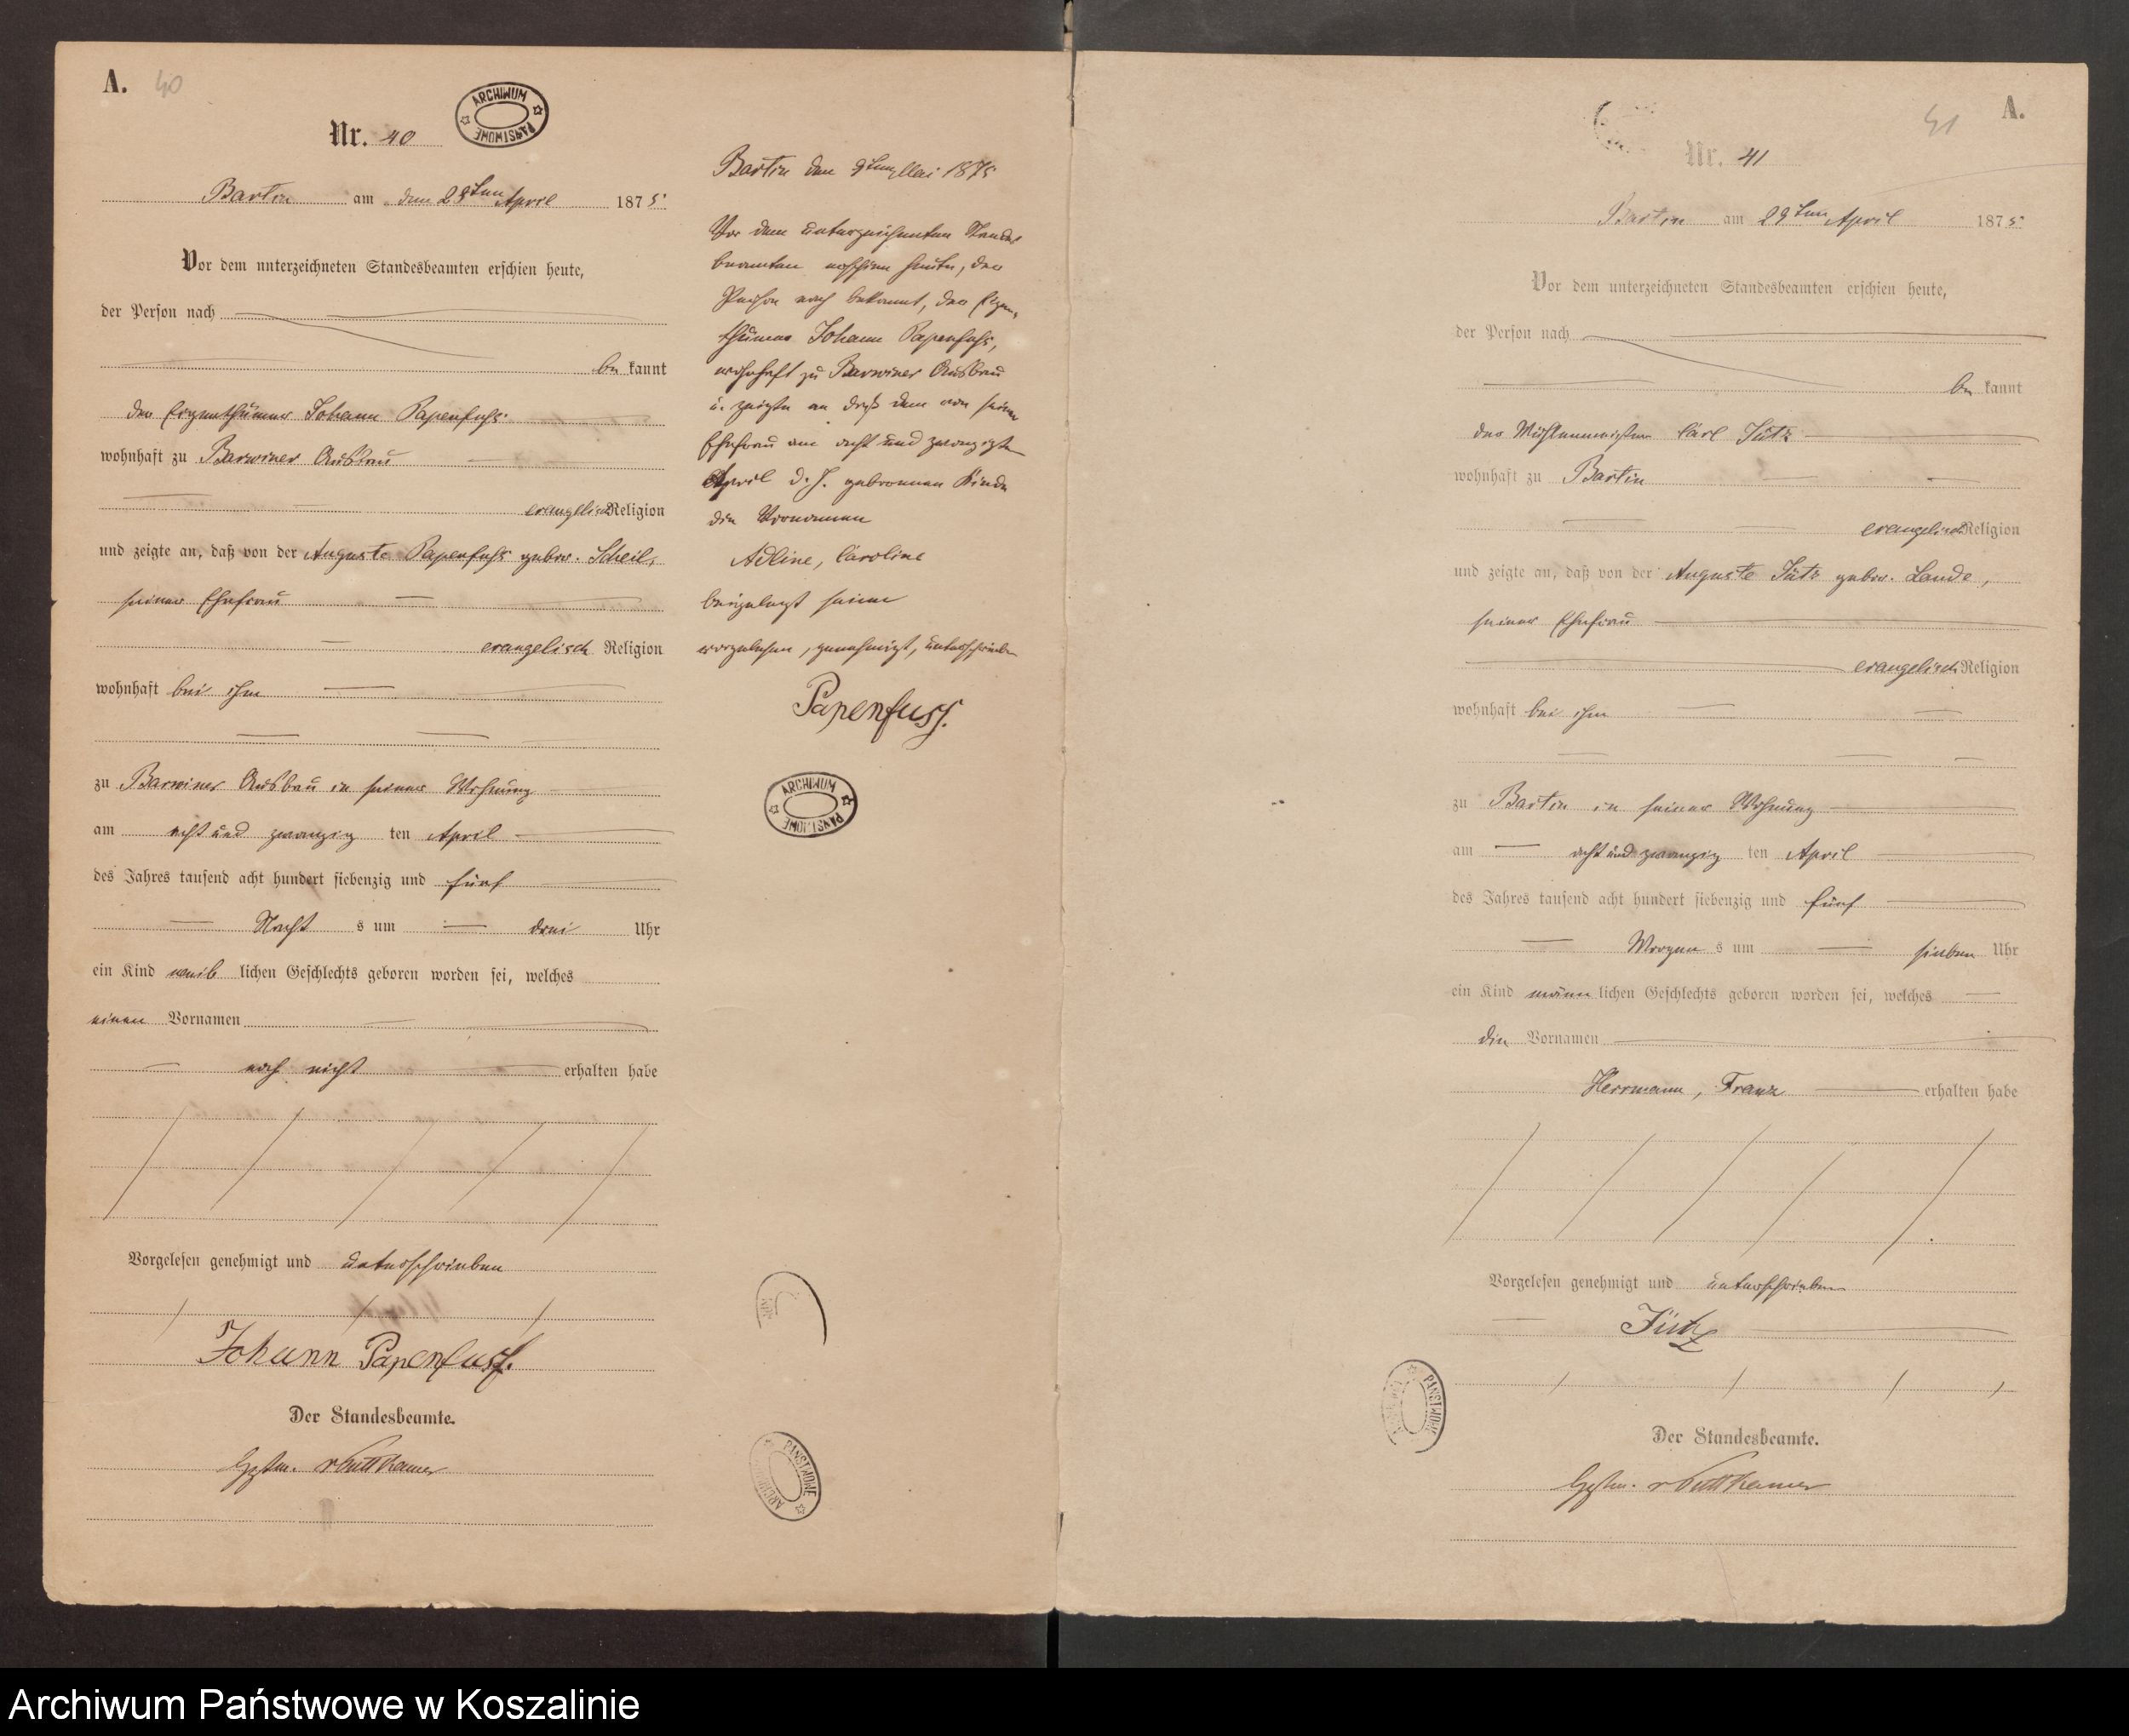 A. 40
ARCHIWUM PAŃSTWOWE
Nr. 40
Bartin am den 28ten April 1875
Vor dem unterzeichneten Standesbeamten erschien heute,
der Person nach
be kannt
der Eigenthümer Johann Papenfuhs
wohnhaft zu Barwiner Ausbau
evangelisch Religion
und zeigte an, daß von der Auguste Papenfuhs gebor. Scheil,
seiner Ehefrau
evangelisch Religion
wohnhaft bei ihm
zu Barwiner Ausbau in seiner Wohnung
am acht und zwanzig ten April
des Jahres tausend acht hundert siebenzig und fünf
Nacht s um drei Uhr
ein Kind weib lichen Geschlechts geboren worden sei, welches
einen Vornamen
noch nicht erhalten habe
Vorgelesen genehmigt und unterschrieben
Johann Papenfuss.
Der Standesbeamte.
v Puttkamer
Bartin den 9ten Mai 1875
Vor dem unterzeichneten Standes
beamten erschien heute, der
Person nach bekannt, der Eigen-
thümer Johann Papenfuhs,
wohnhaft zu Barwiner Ausbau
u. zeigte an daß dem von seiner
Ehefrau am acht und zwanzigten
April d. J. geborenen Kinde
die Vornamen
Adline, Caroline
beigelegt seien
vorgelesen, genehmigt, unterschrieben
Papenfuss.
ARCHIWUM PAŃSTWOWE
ARCHIWUM PAŃSTWOWE
41 A.
Nr. 41
Bartin am 29ten April 1875
Vor dem unterzeichneten Standesbeamten erschien heute,
der Person nach
be kannt
der Mühlenmeister Carl Jütz
wohnhaft zu Bartin
evangelisch Religion
und zeigte an, daß von der Auguste Jütz gebor. Lande,
seiner Ehefrau
evangelisch Religion
wohnhaft bei ihm
zu Bartin in seiner Wohnung
am acht und zwanzig ten April
des Jahres tausend acht hundert siebenzig und fünf
Morgen s um sieben Uhr
ein Kind männ lichen Geschlechts geboren worden sei, welches
die Vornamen
Herrmann, Franz erhalten habe
Vorgelesen genehmigt und unterschrieben
Jütz
PAŃSTWOWE
Der Standesbeamte.
v Puttkamer
Archiwum Państwowe w Koszalinie